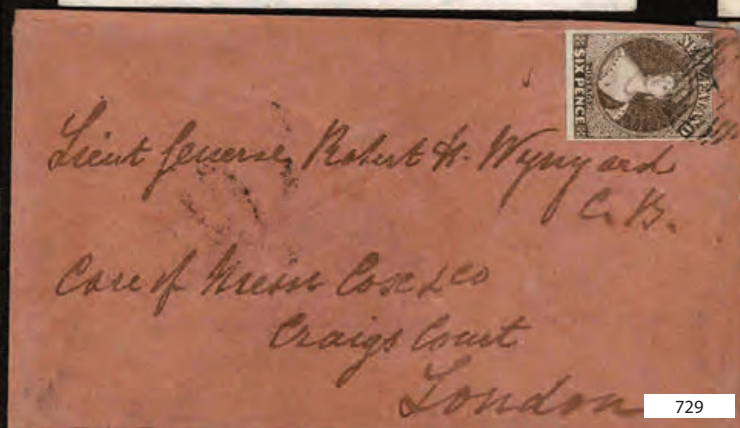 NEW ZEALAND
POSTAGE
SIX PENCE
Lieut General Robert H. Wynyard
C. B.
Care of Messrs Cox & Co
Craigs Court
London
729